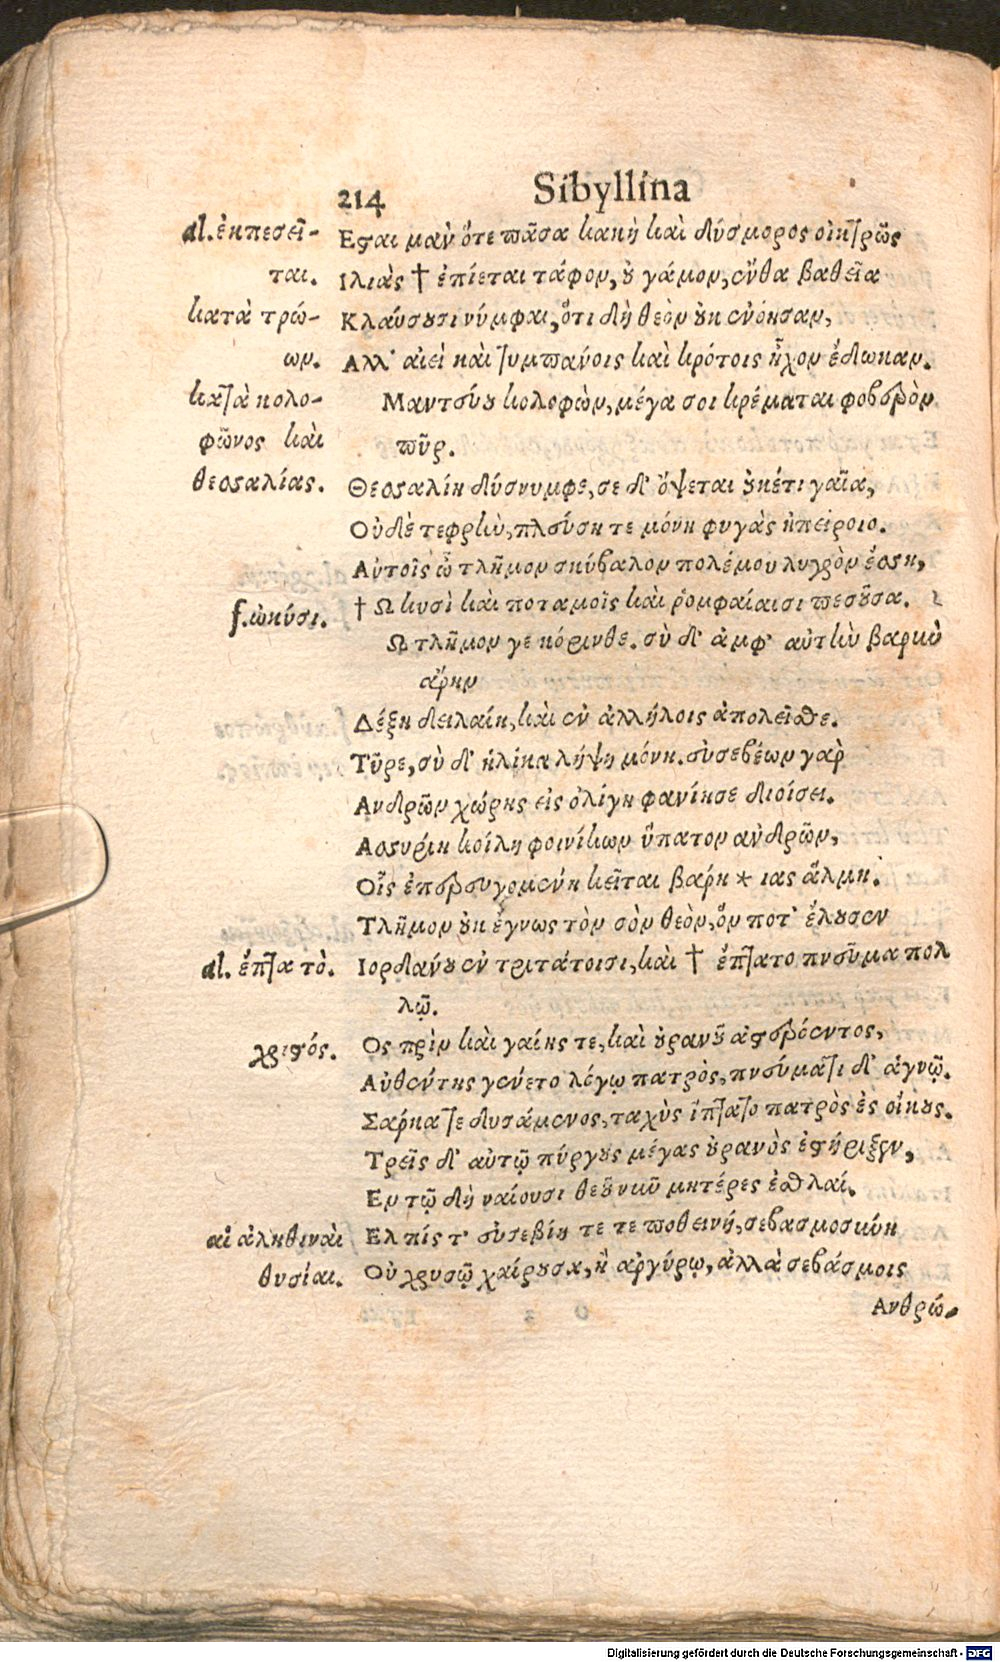 214 Sibyllina
al. ἐκπεσεῖ-
ται.
κατὰ τρώ-
ων.
κατὰ κολο-
φῶνος καὶ
θεσσαλίας.
f. ὠκύσι.
al. ἔπτατό.
χριστός.
αἱ ἀληθιναὶ
θυσίαι.
Εσται μὰν ὅτε πᾶσα κακὴ καὶ δύσμορος οἰκτρῶς
Ιλιὰς † ἐπίεται τάφον, οὐ γάμον, ἔνθα βαθεῖα
Κλαύσουσι νύμφαι, ὅτι δὴ θεὸν οὐκ ἐνόησαν,
Αλλ' αἰεὶ καὶ τυμπάνοις καὶ κρότοις ἦχον ἔδωκαν.
Μαντεύου κολοφὼν, μέγα σοι κρέμαται φοβερὸν
πῦρ.
Θεσσαλίη δύσνυμφε, σε δ' ὄψεται οὐκέτι γαῖα,
Οὐδὲ τεφρὴν, πλεύση τε μόνη φυγὰς ἠπείροιο.
Αὐτοῖς ὦ τλῆμον σκύβαλον πολέμου λυγρὸν ἔσση,
† Ω κυσὶ καὶ ποταμοῖς καὶ ῥομφαίαισι πεσοῦσα.
Ω τλῆμον γε κόρινθε. σὺ δ' ἀμφ' αὐτὴν βαρὺν
ἄρην
Δέξη δειλαίη, καὶ ἐν ἀλλήλοις ἀπολεῖσθε.
Τῦρε, σὺ δ' ἡλίκα λήψη μόνη. εὐσεβέων γὰρ
Ανδρῶν χώρης εἰς ὀλίγη φανίησε διοίσει.
Ασσυρίη κοίλη φοινίκων ὕπατον ἀνδρῶν,
Οἷς ἐπερευγομένη κεῖται βαρη * ιας ἅλμη.
Τλῆμον οὐκ ἔγνως τὸν σὸν θεὸν, ὅν ποτ' ἔλουσεν
Ιορδάνου ἐν τριτάτοισι, καὶ † ἔπτατο πνεῦμα πολ
λῷ.
Ος πρὶν καὶ γαίης τε, καὶ οὐρανοῦ ἀστερόεντος,
Αὐθέντης γένετο λόγῳ πατρὸς, πνεύματι δ' ἁγνῷ.
Σάρκα τε δυσάμενος, ταχὺς ἵπτατο πατρὸς ἐς οἴκους.
Τρεῖς δ' αὐτῷ πύργους μέγας οὐρανὸς ἐστήριξεν,
Εν τῷ δὴ ναίουσι θεοῦ νκῦ μητέρες ἐσθλαί.
Ελπίς τ' εὐσεβίη τε τε ποθεινή, σεβασμοσύνη
Οὐ χρυσῷ χαίρουσα, ἢ ἀργύρῳ, ἀλλὰ σεβάσμοις
Ανθρώ-
Digitalisierung gefördert durch die Deutsche Forschungsgemeinschaft - DFG